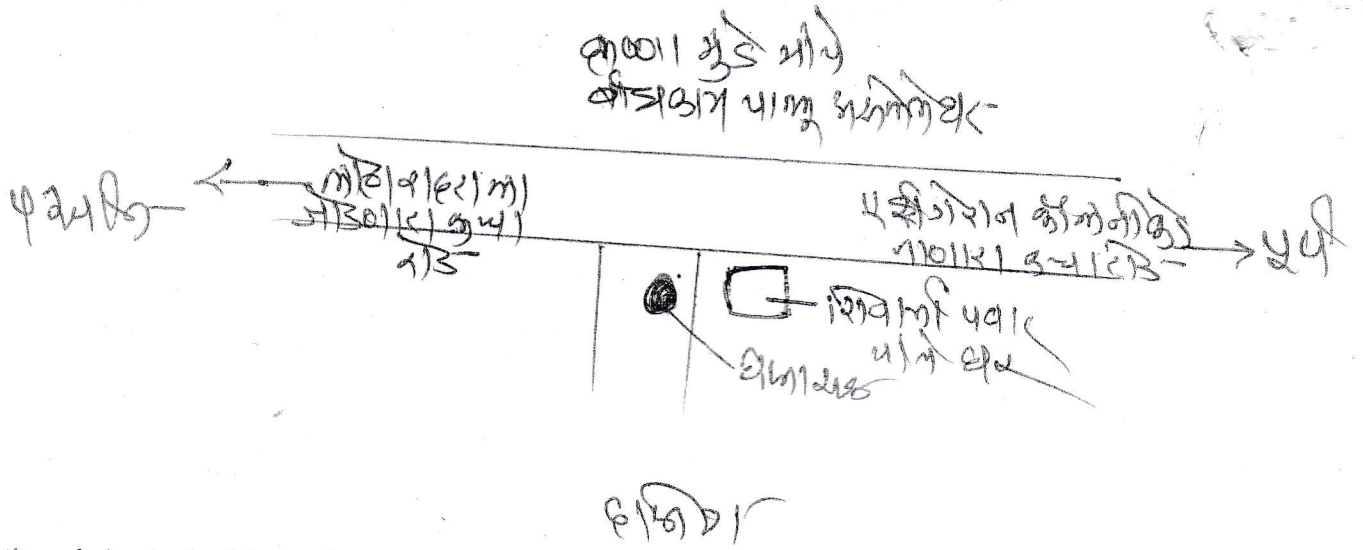 कृष्णा मुंडे यांचे
बांधकाम चालू असलेले घर
पश्चिम
मोठा शहराला
जोडणारा कच्चा
रोड
एरीगेशन कॉलनीकडे
जाणारा कच्चा रोड
पूर्व
शिवाजी पवार
यांचे घर
घटनास्थळ
दक्षिण